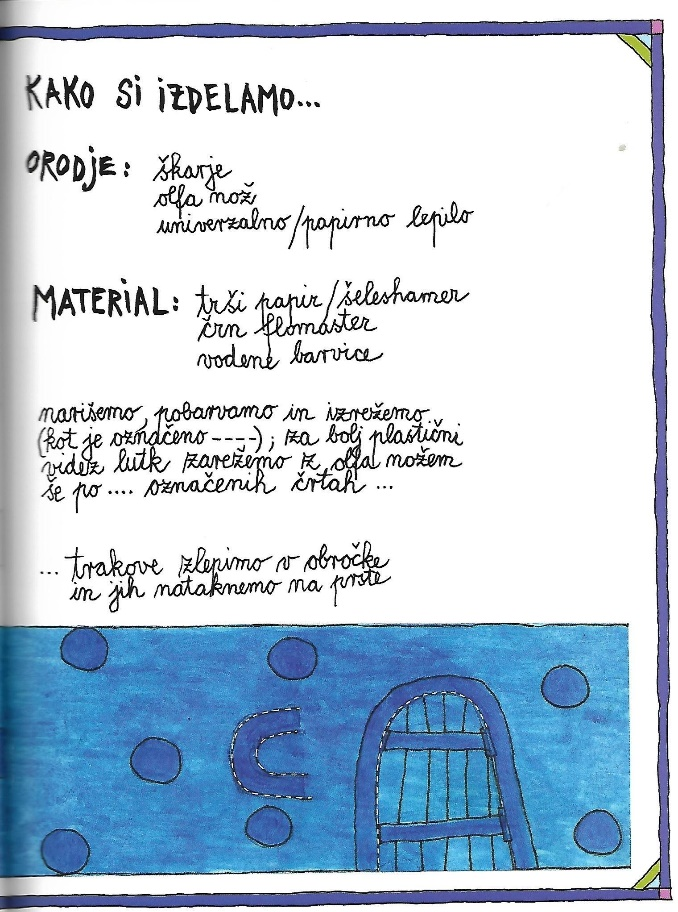 KAKO SI IZDELAMO...
ORODJE: škarje
olfa nož
univerzalno/papirno lepilo
MATERIAL: trši papir/šeleshamer
črn flomaster
vodene barvice
narišemo, pobarvamo in izrežemo
(kot je označeno ----); za bolj plastični
videz lutk zarežemo z olfa nožem
še po .... označenih črtah ...
... trakove zlepimo v obročke
in jih nataknemo na prste